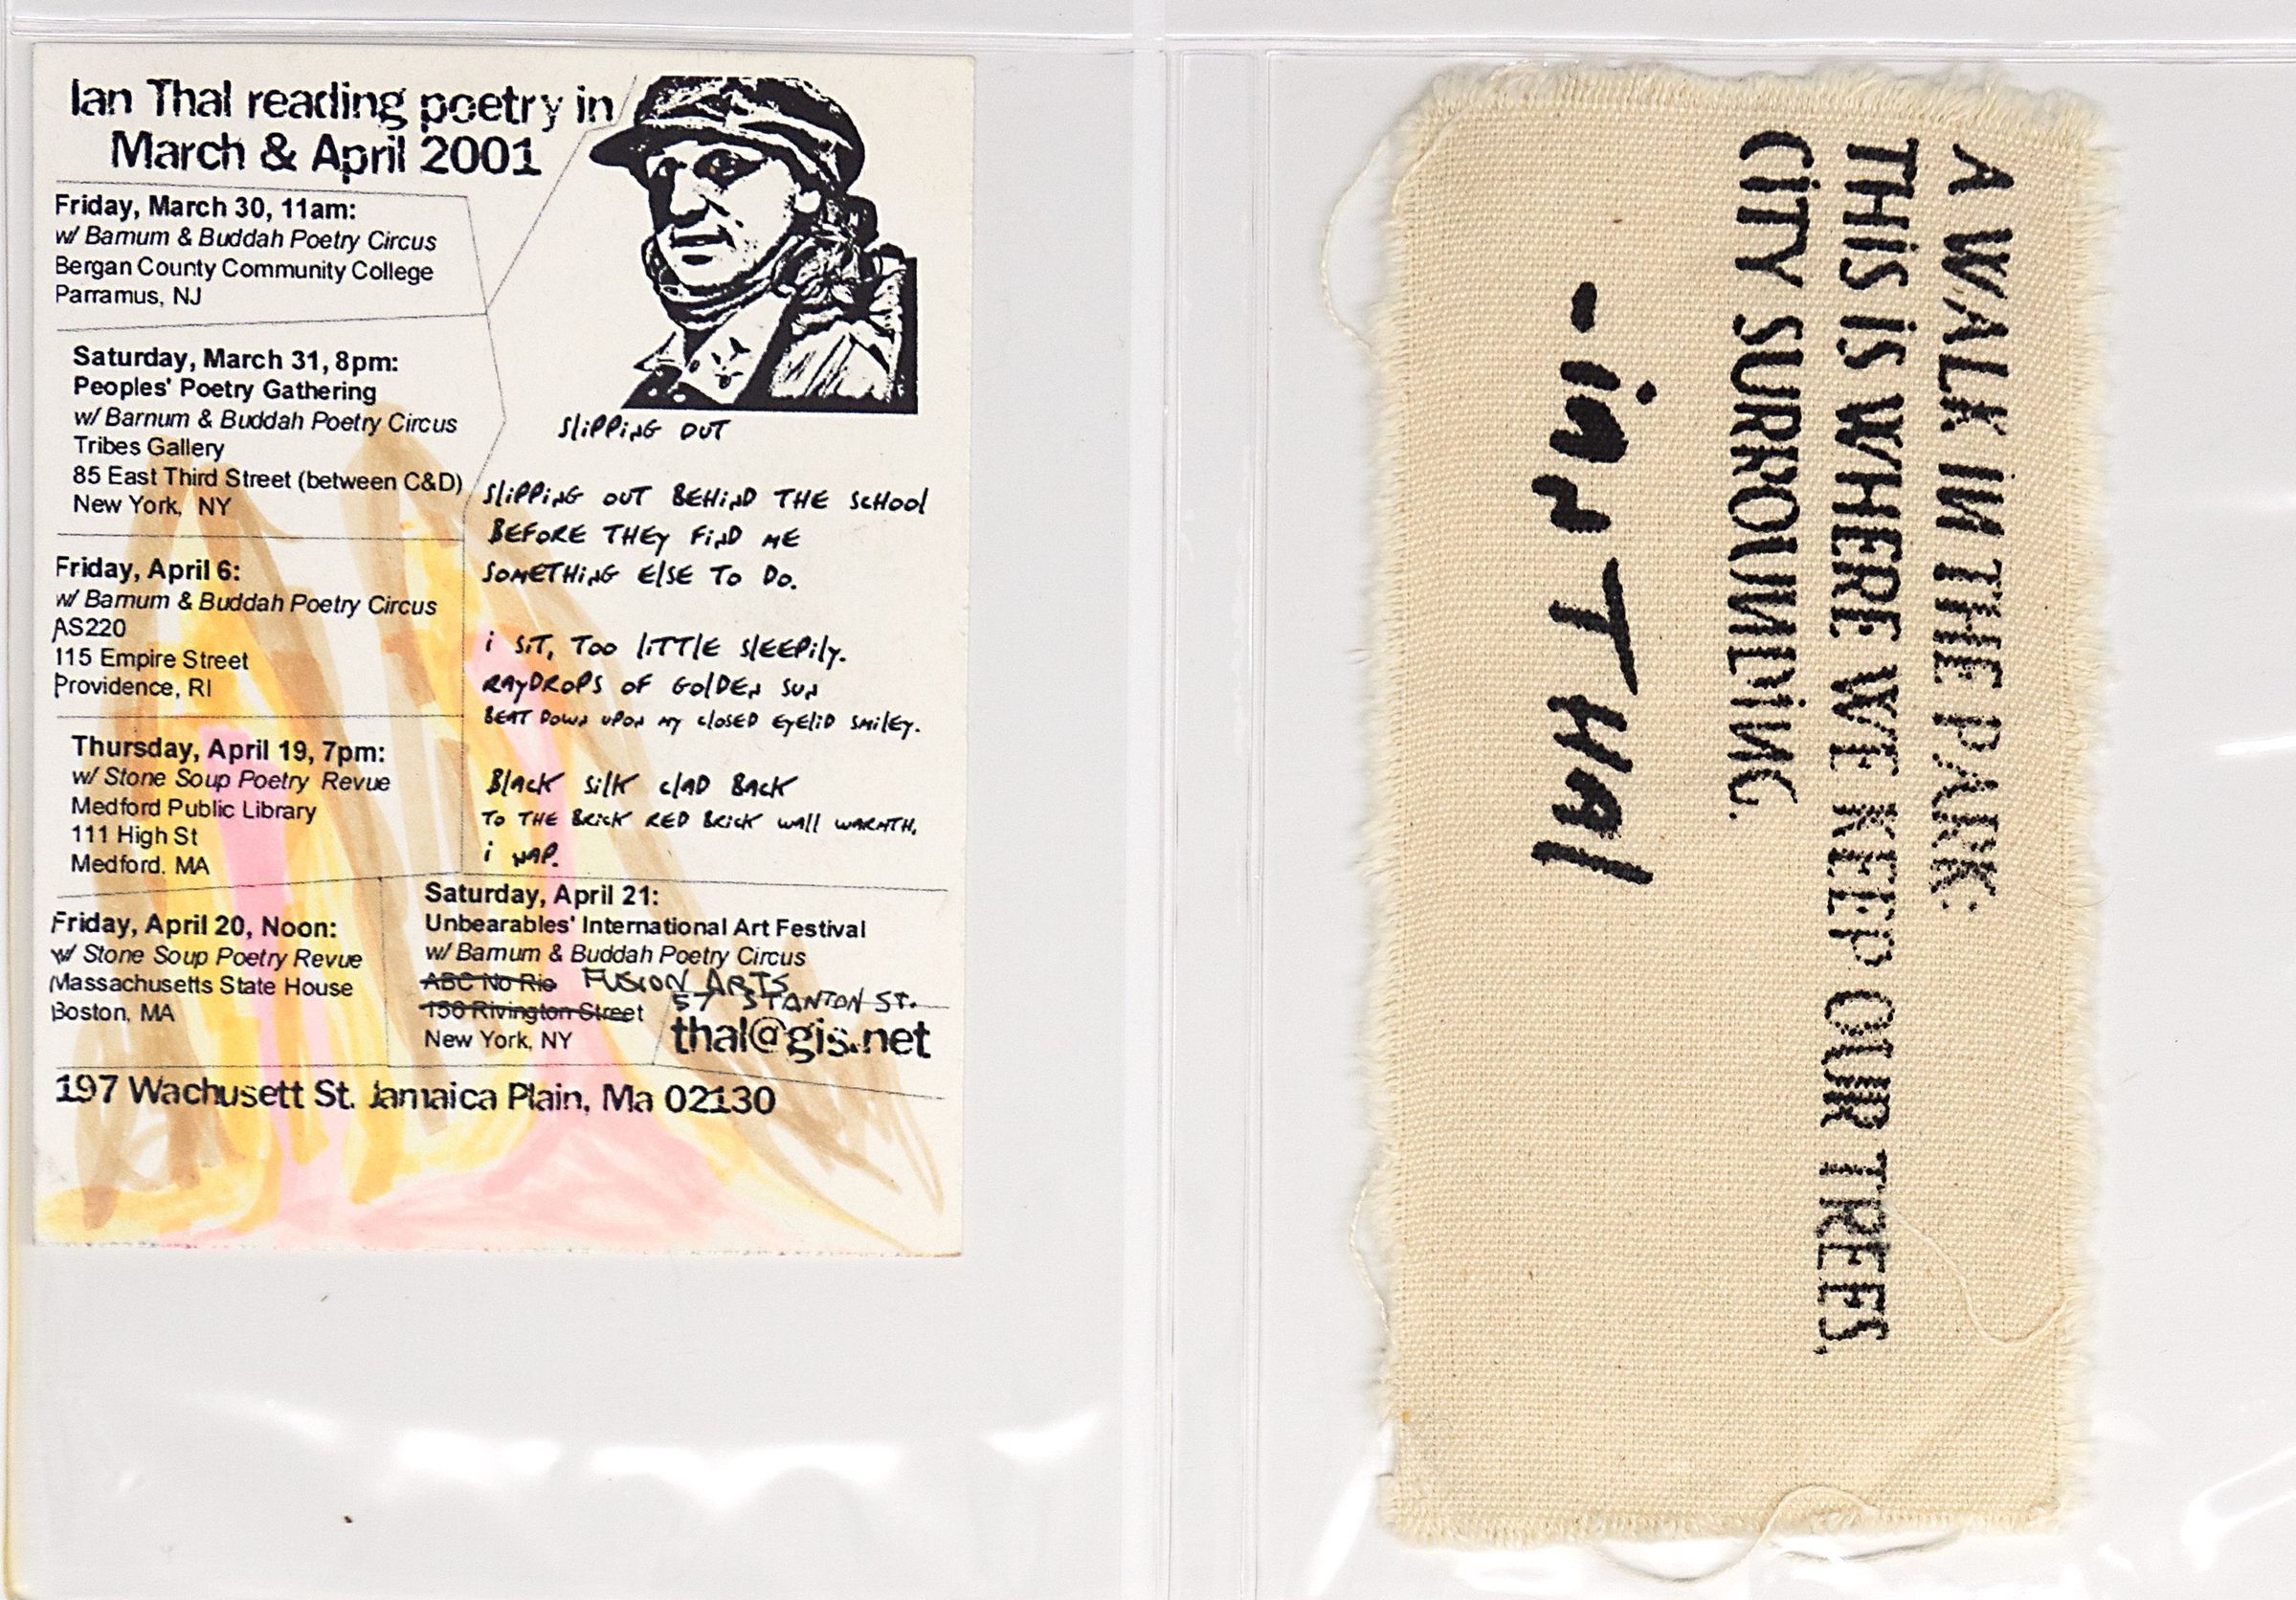 Ian Thal reading poetry in
March & April 2001
Friday, March 30, 11am:
w/ Barnum & Buddah Poetry Circus
Bergan County Community College
Parramus, NJ
Saturday, March 31, 8pm:
Peoples' Poetry Gathering
w/ Barnum & Buddah Poetry Circus
Tribes Gallery
85 East Third Street (between C&D)
New York, NY
Friday, April 6:
w/ Barnum & Buddah Poetry Circus
AS220
115 Empire Street
Providence, RI
Thursday, April 19, 7pm:
w/ Stone Soup Poetry Revue
Medford Public Library
111 High St
Medford, MA
Friday, April 20, Noon:
w/ Stone Soup Poetry Revue
Massachusetts State House
Boston, MA
SliPPiNG OUT
SliPPiNG OUT BEHiND THE SCHOOl
BEFORE THEy FiND ME
SOMETHiNG ElSE TO DO.
i SiT, TOO liTTlE SlEEPily.
RAyDROPS OF GOlDEN SUN
BEAT DOWN UPON MY ClOSED EyEliD SMilEy.
BlACK SilK ClAD BACK
TO THE BRiCK RED BRiCK WAll WARMTH,
i NAP.
Saturday, April 21:
Unbearables' International Art Festival
w/ Barnum & Buddah Poetry Circus
ABC No Rio FUSION ARTS
57 STANTON ST.
156 Rivington Street
New York, NY
thal@gis.net
197 Wachusett St. Jamaica Plain, Ma 02130
A WALK iN THE PARK:
THiS iS WHERE WE KEEP OUR TREES.
CiTY SURROUNDiNG.
- iAN THAl